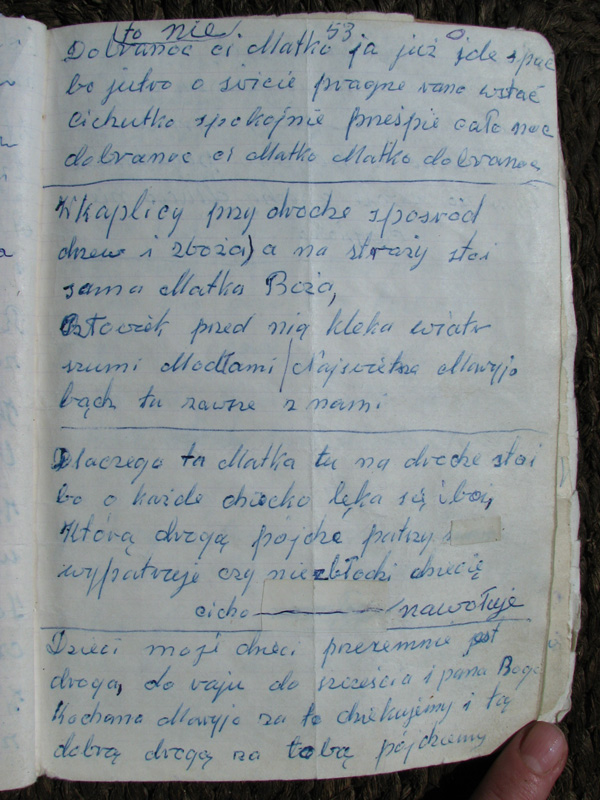 to nie 53
Dobranoc ci Matko ja już jde spać
bo jutro o świcie pragne rano wstać
cichutko spokojnie prześpie cało noc
dobranoc ci Matko Matko dobranoc
W kaplicy przy drodze sposród
drzew i zboża) a na straży stoi
sama Matka Boża,
Człowiek przed nią kleka wiatr
szumi Modłami / Najswietsza Maryjo
bądz tu zawsze z nami
Dlaczego ta Matka tu na drodze stoi
bo o każde dziecko lęka się i boi,
Którą drogą pójdze patrzy
wypatruje czy nie zbłodzi dziecię
cicho nawołuje
Dzieci moje dzieci przezemnie jest
droga, do raju do szcześcia i pana Boga
Kochana Maryjo za to dziekujeimy i tą
dobrą drogą za tobą pójdziemy